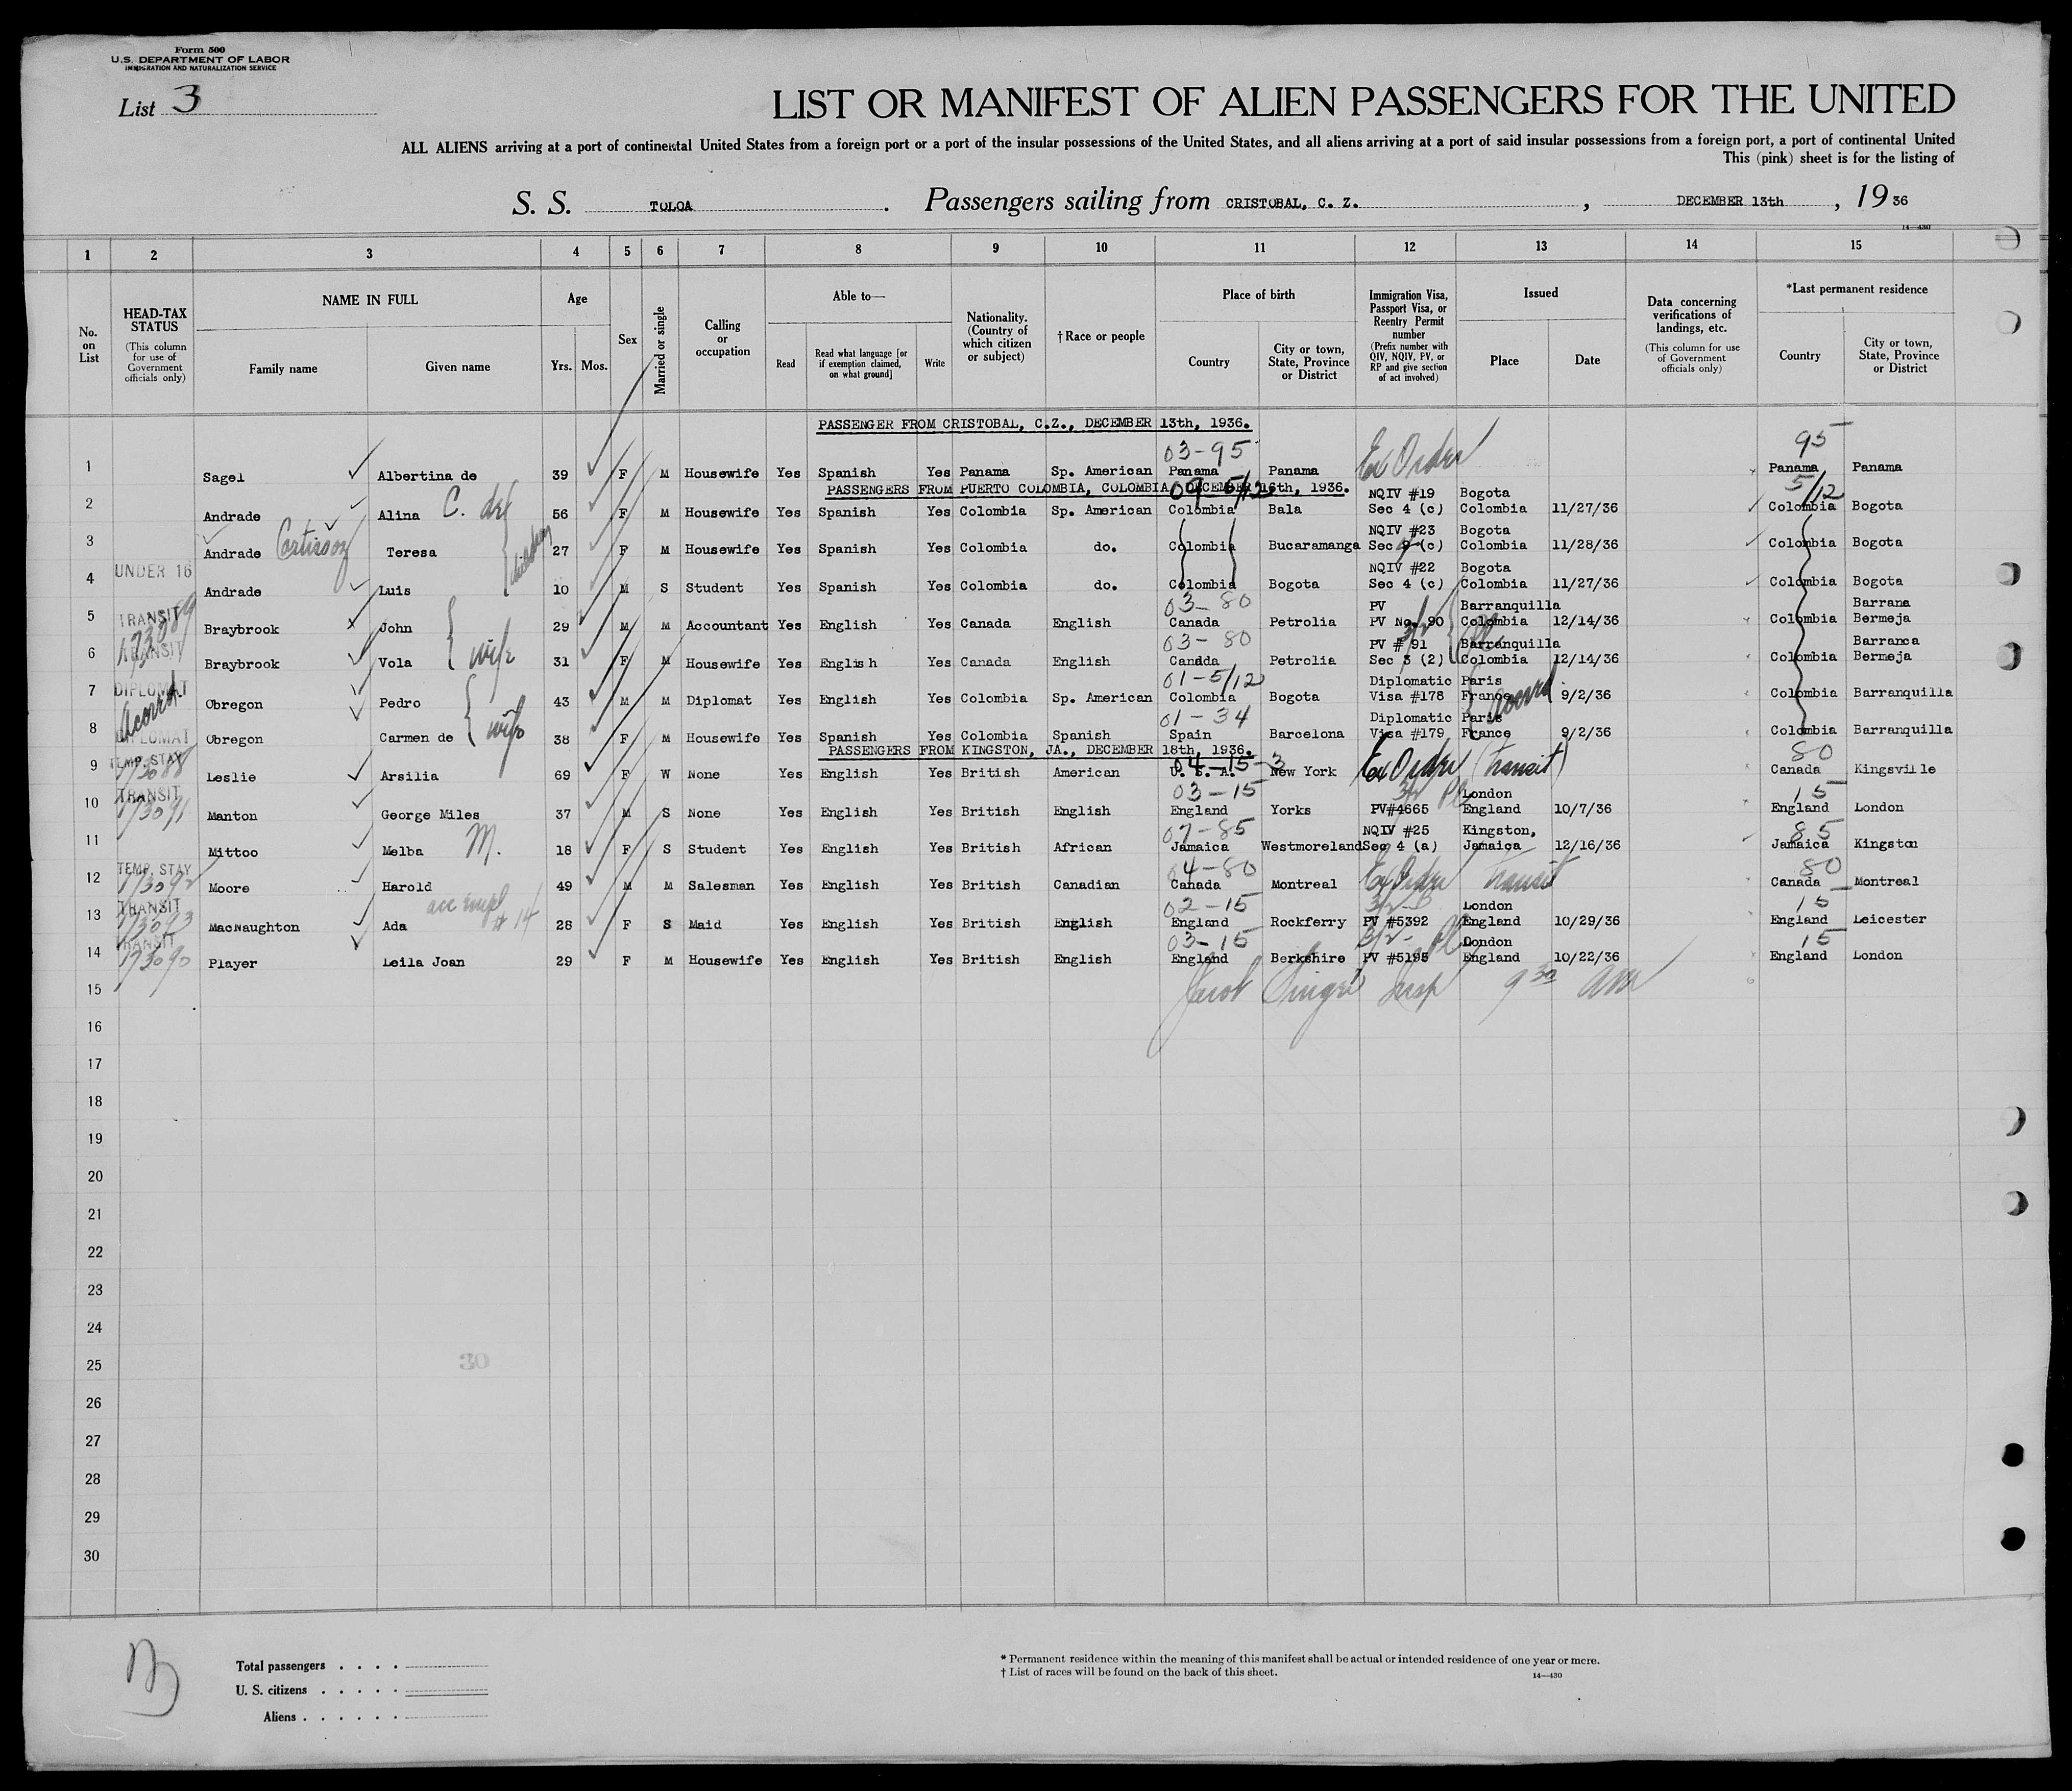 Form 500
U.S. DEPARTMENT OF LABOR
IMMIGRATION AND NATURALIZATION SERVICE
List 3
LIST OR MANIFEST OF ALIEN PASSENGERS FOR THE UNITED
ALL ALIENS arriving at a port of continental United States from a foreign port or a port of the insular possessions of the United States, and all aliens arriving at a port of said insular possessions from a foreign port, a port of continental United
This (pink) sheet is for the listing of
S. S. TOLOA. Passengers sailing from CRISTOBAL, C. Z., DECEMBER 13th, 1936
14—430
1 2 3 4 5 6 7 8 9 10 11 12 13 14 15
No. on List
HEAD-TAX STATUS
(This column for use of Government officials only)
NAME IN FULL
Family name Given name
Age
Yrs. Mos.
Sex
Married or single
Calling or occupation
Able to—
Read
Read what language [or if exemption claimed, on what ground]
Write
Nationality. (Country of which citizen or subject)
†Race or people
Place of birth
Country
City or town, State, Province or District
Immigration Visa, Passport Visa, or Reentry Permit number
(Prefix number with QIV, NQIV, PV, or RP and give section of act involved)
Issued
Place Date
Data concerning verifications of landings, etc.
(This column for use of Government officials only)
*Last permanent residence
Country
City or town, State, Province or District
PASSENGER FROM CRISTOBAL, C.Z., DECEMBER 13th, 1936.
03-95 95
1 Sagel Albertina de 39 F M Housewife Yes Spanish Yes Panama Sp. American Panama Panama Ex Order Panama Panama
PASSENGERS FROM PUERTO COLOMBIA, COLOMBIA, DECEMBER 16th, 1936.
09 5/12 5/12
NQIV #19 Bogota
2 Andrade Alina C. de 56 F M Housewife Yes Spanish Yes Colombia Sp. American Colombia Bala Sec 4 (c) Colombia 11/27/36 Colombia Bogota
NQIV #23 Bogota
3 Andrade Teresa 27 F M Housewife Yes Spanish Yes Colombia do. Colombia Bucaramanga Sec (c) Colombia 11/28/36 Colombia Bogota
children
UNDER 16 NQIV #22 Bogota
4 Andrade Luis 10 M S Student Yes Spanish Yes Colombia do. Colombia Bogota Sec 4 (c) Colombia 11/27/36 Colombia Bogota
TRANSIT 03-80 PV Barranquilla Barrana
5 Braybrook John 29 M M Accountant Yes English Yes Canada English Canada Petrolia PV No. 90 Colombia 12/14/36 Colombia Bermeja
TRANSIT 03-80 PV # 91 Barranquilla Barranca
6 Braybrook Vola wife 31 F M Housewife Yes English Yes Canada English Canada Petrolia Sec 3 (2) Colombia 12/14/36 Colombia Bermeja
DIPLOMAT 01-5/12 Diplomatic Paris
7 Obregon Pedro 43 M M Diplomat Yes English Yes Colombia Sp. American Colombia Bogota Visa #178 France 9/2/36 Colombia Barranquilla
DIPLOMAT 01-34 Diplomatic Paris
8 Obregon Carmen de wife 38 F M Housewife Yes Spanish Yes Colombia Spanish Spain Barcelona Visa #179 France 9/2/36 Colombia Barranquilla
PASSENGERS FROM KINGSTON, JA., DECEMBER 18th, 1936.
TEMP. STAY 04-15-3 80
9 Leslie Arsilia 69 F W None Yes English Yes British American U. S. A. New York Ex Order (Transit) Canada Kingsville
TRANSIT 173091 03-15 London 15
10 Manton George Miles 37 M S None Yes English Yes British English England Yorks PV#4665 England 10/7/36 England London
07-85 NQIV #25 Kingston, 85
11 Mittoo Melba M. 18 F S Student Yes English Yes British African Jamaica Westmoreland Sec 4 (a) Jamaica 12/16/36 Jamaica Kingston
TEMP. STAY 173092 04-80 80
12 Moore Harold 49 M M Salesman Yes English Yes British Canadian Canada Montreal Ex Order Transit Canada Montreal
TRANSIT 173093 acc empl # 14 02-15 3/2- London 15
13 MacNaughton Ada 28 F S Maid Yes English Yes British English England Rockferry PV #5392 England 10/29/36 England Leicester
TRANSIT 173090 03-15 3/2- London 15
14 Player Leila Joan 29 F M Housewife Yes English Yes British English England Berkshire PV #5195 England 10/22/36 England London
15 Insp 9 30 am
16
17
18
19
20
21
22
23
24
25
26
27
28
29
30
Total passengers . . . .
U. S. citizens . . . . .
Aliens . . . . . .
* Permanent residence within the meaning of this manifest shall be actual or intended residence of one year or more.
† List of races will be found on the back of this sheet. 14—430